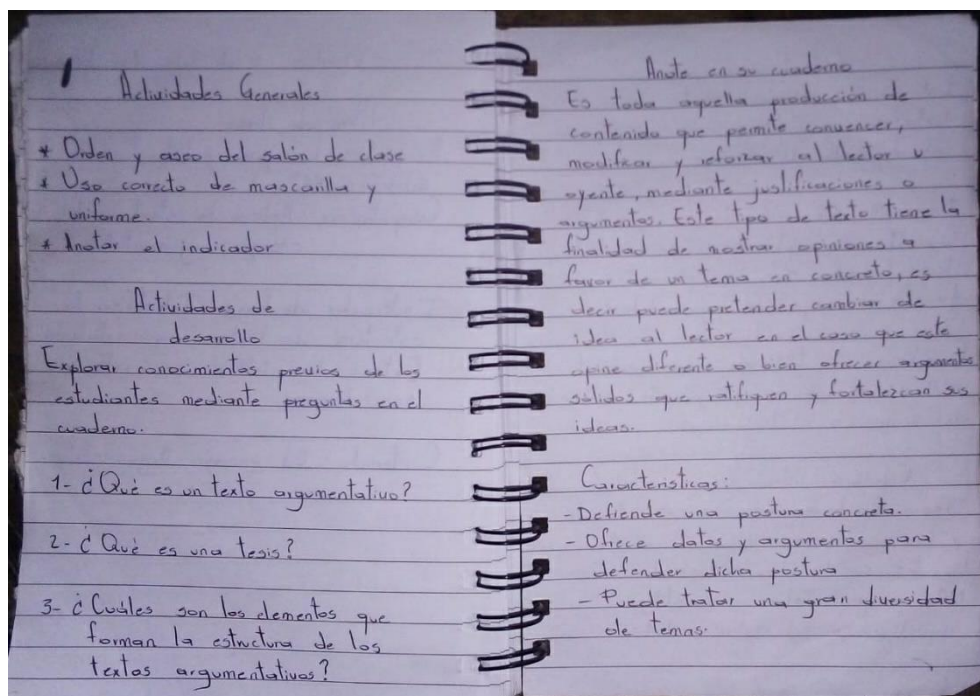 Actividades Generales
* Orden y aseo del salón de clase
* Uso correcto de mascarilla y
uniforme.
* Anotar el indicador
Actividades de
desarrollo
Explorar conocimientos previos de los
estudiantes mediante preguntas en el
cuaderno.
1- ¿Qué es un texto argumentativo?
2- ¿Qué es una tesis?
3- ¿Cuáles son los elementos que
forman la estructura de los
textos argumentativos?
Anote en su cuaderno
Es toda aquella producción de
contenido que permite convencer,
modificar y reforzar al lector u
oyente, mediante justificaciones o
argumentos. Este tipo de texto tiene la
finalidad de mostrar opiniones a
favor de un tema en concreto, es
decir puede pretender cambiar de
idea al lector en el caso que este
opine diferente o bien ofrecer argumentos
sólidos que ratifiquen y fortalezcan sus
ideas.
Características:
- Defiende una postura concreta.
- Ofrece datos y argumentos para
defender dicha postura
- Puede tratar una gran diversidad
de temas.